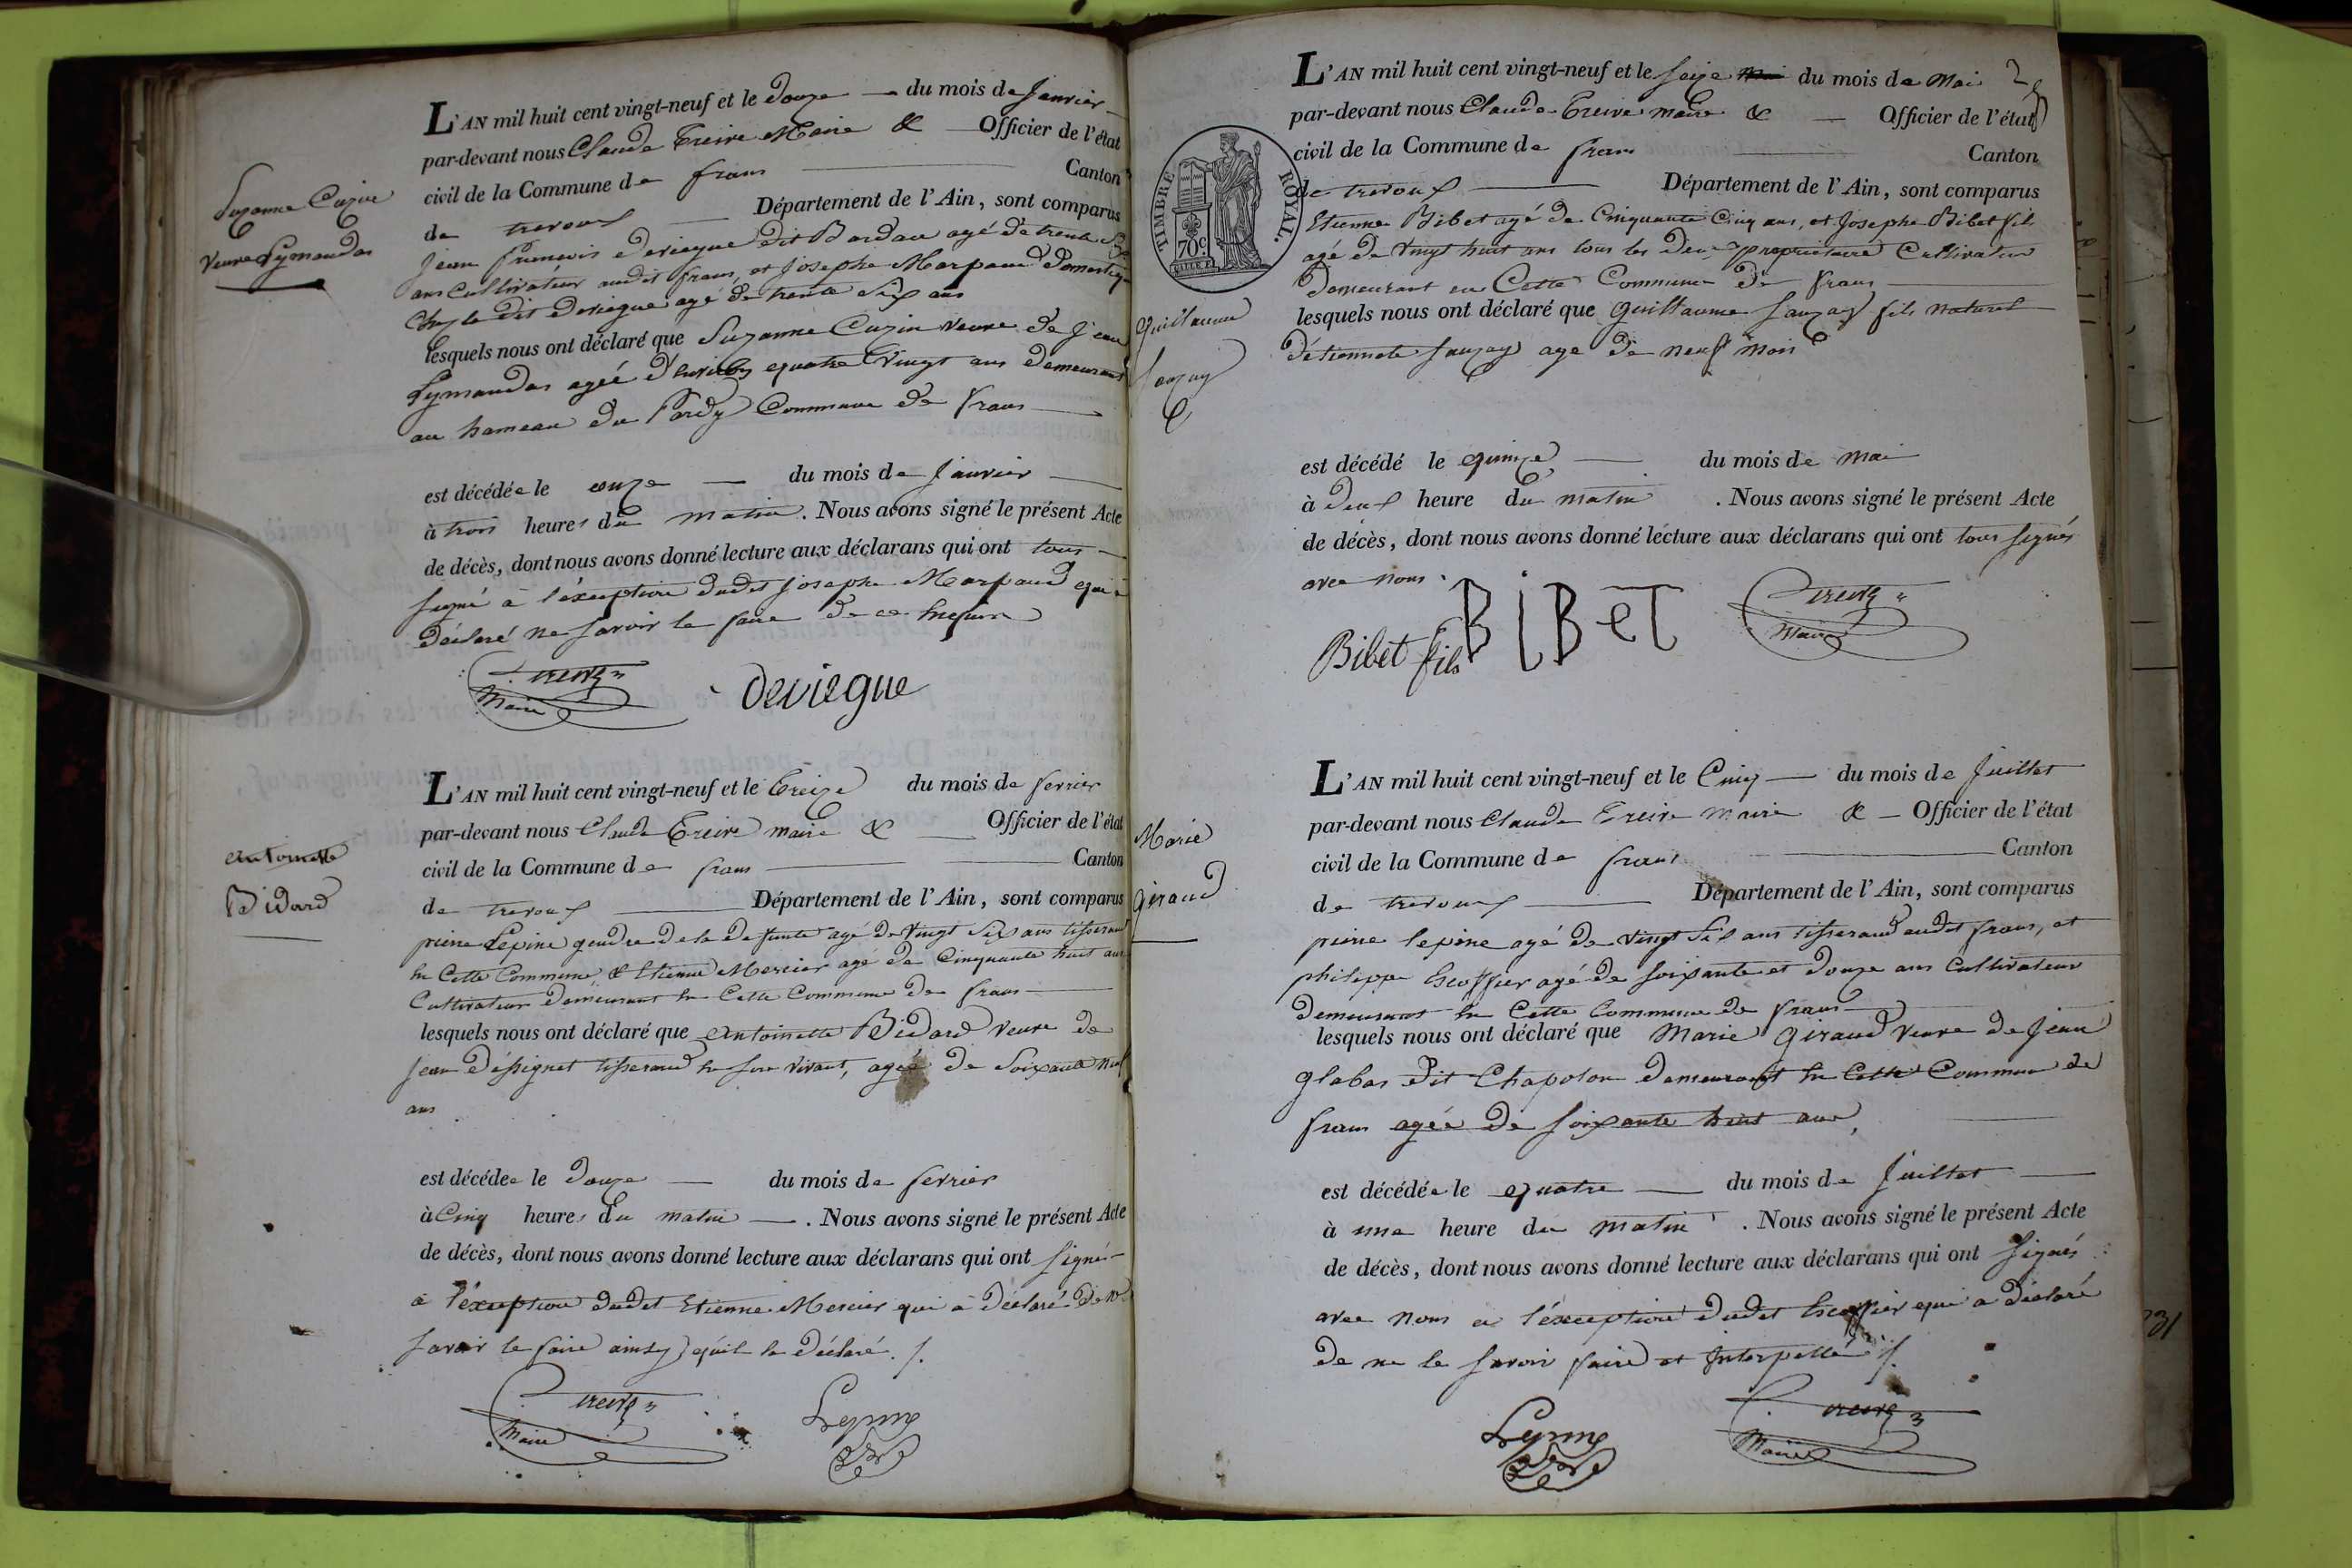 Suzanne Cuzin
Veuve Lymandas
L'AN mil huit cent vingt-neuf et le douze du mois de Janvier
par-devant nous Claude Treive Maire & Officier de l'état
civil de la Commune de frans Canton
de trevoux Département de l'Ain, sont comparus
Jean francois deviegue dit Bardau agé de trente
ans Cultivateur audit frans, et Josephe Marpaud domestique
Chez le dit deviegue agé de trente Six ans
lesquels nous ont déclaré que Suzanne Cuzin Veuve de Jean
Lymandas agée d'environ quatre Vingt ans demeurant
au hameau du Pardy Commune de frans
est décédée le onze du mois de Janvier
à trois heures du matin. Nous avons signé le présent Acte
de décès, dont nous avons donné lecture aux déclarans qui ont tous
signé à l'éxception dudit Josephe Marpaud qui a
déclaré ne savoir le faire de ce
Treive
Maire
deviegue
Antoinette
Bidard
L'AN mil huit cent vingt-neuf et le Treize du mois de fevrier
par-devant nous Claude Treive maire & Officier de l'état
civil de la Commune de frans Canton
de trevoux Département de l'Ain, sont comparus
pierre Lepine gendre de la defunte agé de Vingt Six ans tisserand
en Cette Commune & Etienne Mercier age de Cinquante huit ans
Cultivateur demeurant en Cette Commune de frans
lesquels nous ont déclaré que Antoinette Bidard Veuve de
Jean déssignet tisserand en son Vivant, agée de Soixante neuf
ans
est décédée le douze du mois de fevrier
à Cinq heures du matin. Nous avons signé le présent Acte
de décès, dont nous avons donné lecture aux déclarans qui ont signé
à l'éxception dudit Etienne Mercier qui à déclaré de ne
savoir le faire ainsy qu'il la déclaré ./.
Treive
Maire
Lepine
L'AN mil huit cent vingt-neuf et le seize du mois de Mai
par-devant nous Claude Treive maire & Officier de l'état
civil de la Commune de frans Canton
de trevoux Département de l'Ain, sont comparus
TIMBRE ROYAL.
70c.
Etienne Bibet agé de Cinquante Cinq ans, et Josephe Bibet fils
agé de Vingt huit ans tous les deux propriétaire Cultivateur
demeurant en Cette Commune de frans
Guillaume
Sauzay
lesquels nous ont déclaré que Guillaume Sauzay fils naturel
détiennete Sauzay age de neuf mois
est décédé le quinze du mois de Mai
à deux heure du matin. Nous avons signé le présent Acte
de décès, dont nous avons donné lecture aux déclarans qui ont tous signés
avec nous.
BIBET
Treive
Maire
Bibet fils
Marie
Giraud
L'AN mil huit cent vingt-neuf et le Cinq du mois de Juillet
par-devant nous Claude Treive maire & Officier de l'état
civil de la Commune de frans Canton
de trevoux Département de l'Ain, sont comparus
pierre lepine agé de Vingt Six ans tisserand audit frans, et
philippe Escoffier agé de soixante et douze ans Cultivateur
demeurant en Cette Commune de frans
lesquels nous ont déclaré que Marie Giraud Veuve de Jean
Glabas dit Chapolon demeurant en Cette Commune de
frans agée de soixante huit ans,
est décédée le quatre du mois de Juillet
à une heure du matin. Nous avons signé le présent Acte
de décès, dont nous avons donné lecture aux déclarans qui ont signés
avec nous a l'éxception dudit Escoffier qui a déclaré
de ne le savoir faire et Interpellé ./.
Lepine
Treive
Maire